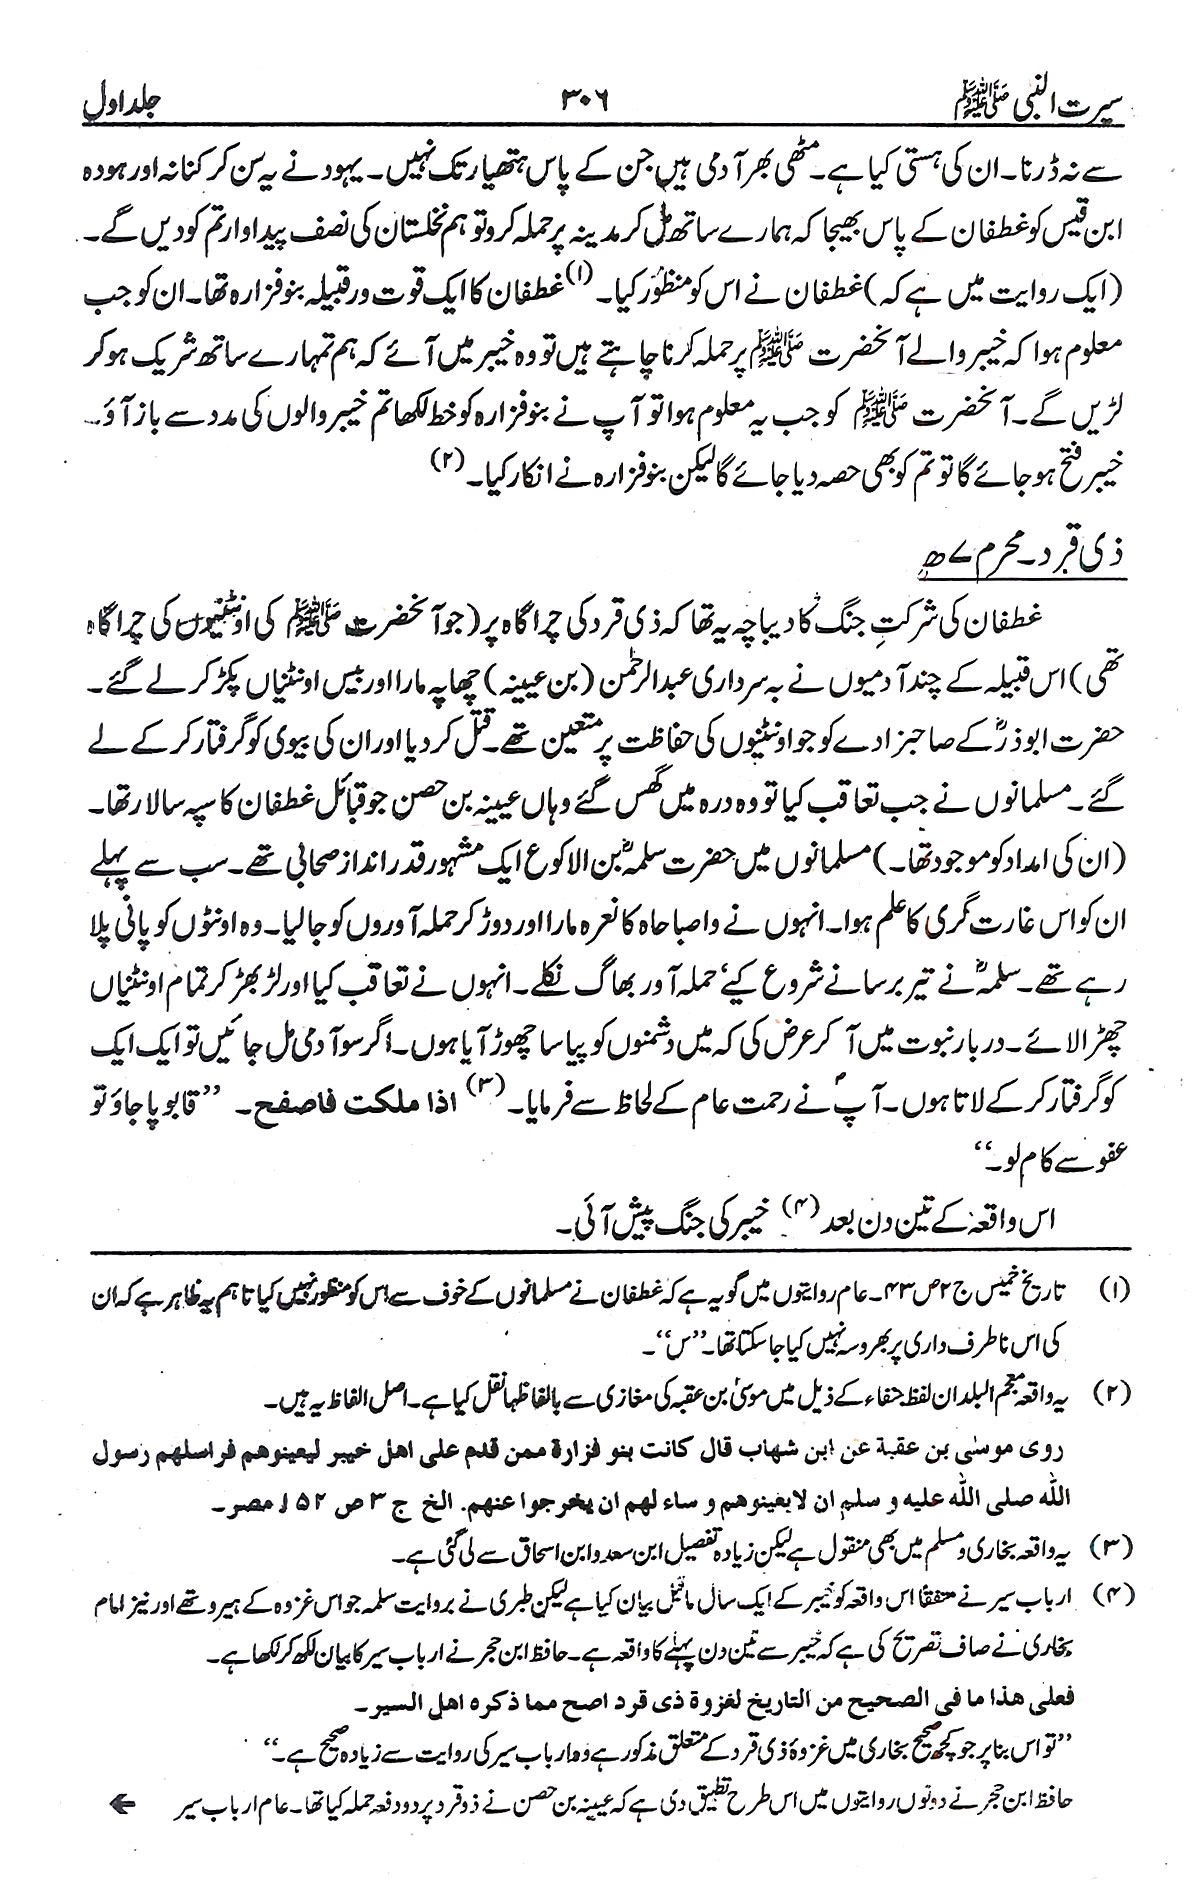 سیرت النبی ﷺ ۳۰۶ جلد اول
سے نہ ڈرنا۔ ان کی ہستی کیا ہے۔ مٹھی بھر آدمی ہیں جن کے پاس ہتھیار تک نہیں۔ یہود نے یہ سن کر کنانہ اور ہودہ
ابن قیس کو غطفان کے پاس بھیجا کہ ہمارے ساتھ مل کر مدینہ پر حملہ کرو تو ہم نخلستان کی نصف پیداوار تم کو دیں گے۔
(ایک روایت میں ہے کہ) غطفان نے اس کو منظور کیا۔ (۱) غطفان کا ایک قوت ور قبیلہ بنو فزارہ تھا۔ ان کو جب
معلوم ہوا کہ خیبر والے آنحضرت ﷺ پر حملہ کرنا چاہتے ہیں تو وہ خیبر میں آئے کہ ہم تمہارے ساتھ شریک ہو کر
لڑیں گے۔ آنحضرت ﷺ کو جب یہ معلوم ہوا تو آپ نے بنو فزارہ کو خط لکھا تم خیبر والوں کی مدد سے باز آؤ۔
خیبر فتح ہو جائے گا تو تم کو بھی حصہ دیا جائے گا لیکن بنو فزارہ نے انکار کیا۔ (۲)
ذی قرد۔ محرم ۷ھ
غطفان کی شرکتِ جنگ کا دیباچہ یہ تھا کہ ذی قرد کی چراگاہ پر (جو آنحضرت ﷺ کی اونٹنیوں کی چراگاہ
تھی) اس قبیلہ کے چند آدمیوں نے بہ سرداری عبدالرحمٰن (بن عیینہ) چھاپہ مارا اور بیس اونٹنیاں پکڑ کر لے گئے۔
حضرت ابوذرؓ کے صاحبزادے کو جو اونٹنیوں کی حفاظت پر متعین تھے۔ قتل کر دیا اور ان کی بیوی کو گرفتار کر کے لے
گئے۔ مسلمانوں نے جب تعاقب کیا تو وہ درہ میں گھس گئے وہاں عیینہ بن حصن جو قبائل غطفان کا سپہ سالار تھا۔
(ان کی امداد کو موجود تھا۔) مسلمانوں میں حضرت سلمہؓ بن الاکوع ایک مشہور قدر انداز صحابی تھے۔ سب سے پہلے
ان کو اس غارت گری کا علم ہوا۔ انہوں نے واصباحاہ کا نعرہ مارا اور دوڑ کر حملہ آوروں کو جا لیا۔ وہ اونٹوں کو پانی پلا
رہے تھے۔ سلمہؓ نے تیر برسانے شروع کیے، حملہ آور بھاگ نکلے۔ انہوں نے تعاقب کیا اور لڑ بھڑ کر تمام اونٹنیاں
چھڑا لائے۔ دربار نبوت میں آ کر عرض کی کہ میں دشمنوں کو پیاسا چھوڑ آیا ہوں۔ اگر سو آدمی مل جائیں تو ایک ایک
کو گرفتار کر کے لاتا ہوں۔ آپؐ نے رحمت عام کے لحاظ سے فرمایا۔ (۳) اذا ملکت فاصفح۔ ”قابو پا جاؤ تو
عفو سے کام لو۔“
اس واقعہ کے تین دن بعد (۴) خیبر کی جنگ پیش آئی۔
(۱) تاریخ خمیس ج ۲ ص ۴۳۔ عام روایتوں میں گو یہ ہے کہ غطفان نے مسلمانوں کے خوف سے اس کو منظور نہیں کیا تاہم یہ ظاہر ہے کہ ان
کی اس نا طرف داری پر بھروسہ نہیں کیا جا سکتا تھا۔ ”س“۔
(۲) یہ واقعہ معجم البلدان لفظ جفاء کے ذیل میں موسیٰ بن عقبہ کی مغازی سے بالفاظہا نقل کیا ہے۔ اصل الفاظ یہ ہیں۔
روی موسٰی بن عقبة عن ابن شهاب قال کانت بنو فزارة ممن قدم علی اهل خیبر لیعینوهم فراسلهم رسول
اللّٰه صلی اللّٰه علیه و سلم ان لا یعینوهم و ساء لهم ان یخرجوا عنهم. الخ ج ۳ ص ۱۵۲ مصر۔
(۳) یہ واقعہ بخاری و مسلم میں بھی منقول ہے لیکن زیادہ تفصیل ابن سعد و ابن اسحاق سے لی گئی ہے۔
(۴) ارباب سیر نے متفقًا اس واقعہ کو خیبر کے ایک سال ماقبل بیان کیا ہے لیکن طبری نے بروایت سلمہ جو اس غزوہ کے ہیرو تھے اور نیز امام
بخاری نے صاف تصریح کی ہے کہ خیبر سے تین دن پہلے کا واقعہ ہے۔ حافظ ابن حجر نے ارباب سیر کا بیان لکھ کر لکھا ہے۔
فعلی هذا ما فی الصحیح من التاریخ لغزوة ذی قرد اصح مما ذکره اهل السیر۔
”تو اس بنا پر جو کچھ صحیح بخاری میں غزوۂ ذی قرد کے متعلق مذکور ہے وہ ارباب سیر کی روایت سے زیادہ صحیح ہے۔“
حافظ ابن حجر نے دونوں روایتوں میں اس طرح تطبیق دی ہے کہ عیینہ بن حصن نے ذو قرد پر دو دفعہ حملہ کیا تھا۔ عام ارباب سیر ←